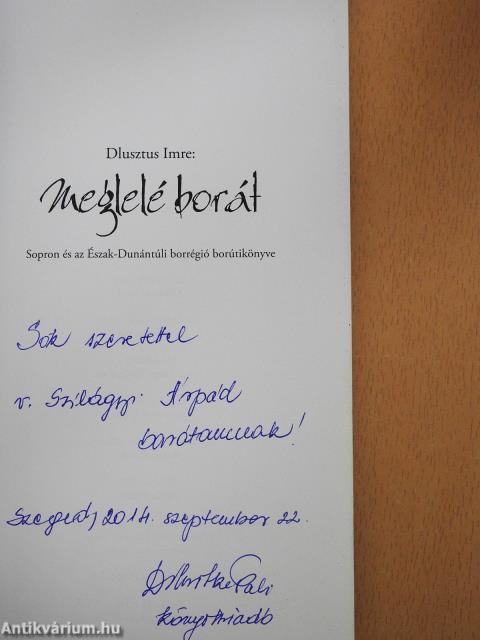 Dlusztus Imre:
Meglelé borát
Sopron és az Észak-Dunántúli borrégió borútikönyve
Sok szeretettel
v. Szilágyi Árpád
barátomnak!
Szeged, 2014. szeptember 22.
könyvkiadó
Antikvárium.hu